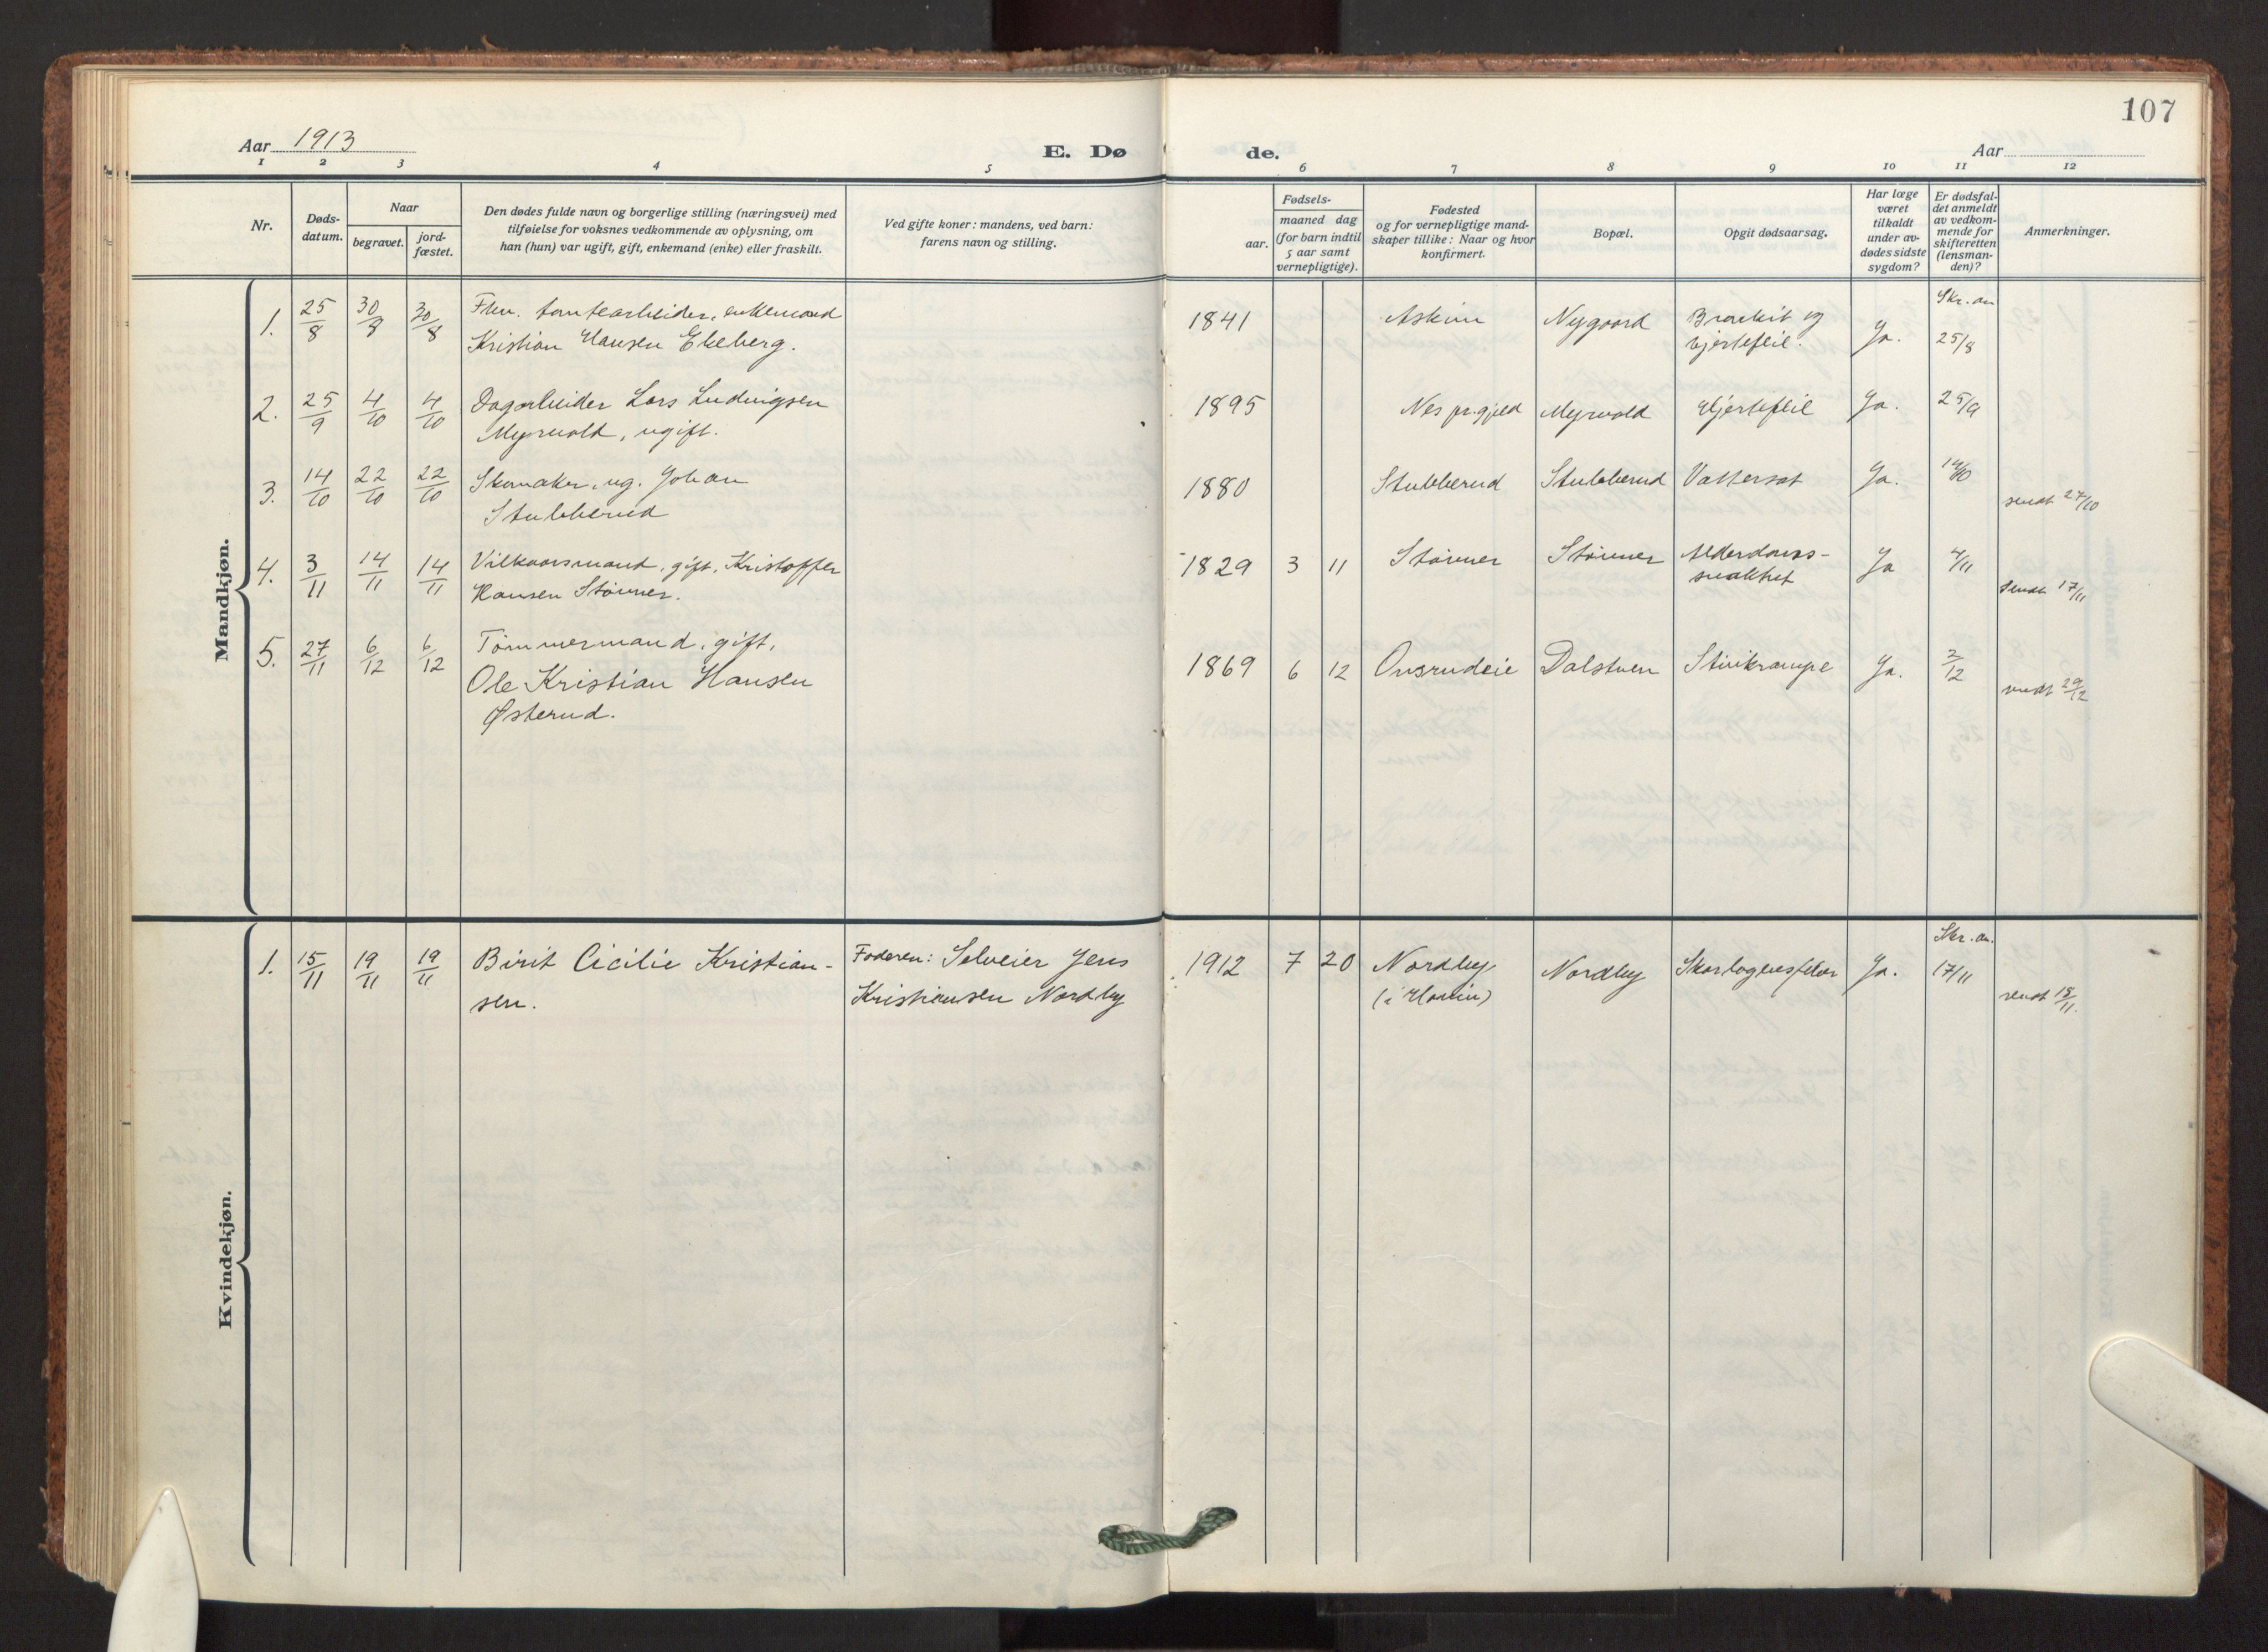 107
Aar 1913
E. Dø
de.
Aar
1 2 3 4 5 6 7 8 9 10 11 12
Nr.
Døds-
datum.
Naar
begravet.
jord-
fæstet.
Den dødes fulde navn og borgerlige stilling (næringsvei) med
tilføielse for voksnes vedkommende av oplysning, om
han (hun) var ugift, gift, enkemand (enke) eller fraskilt.
Ved gifte koner: mandens, ved barn:
farens navn og stilling.
Fødsels-
aar.
maaned dag
(for barn indtil
5 aar samt
vernepligtige).
Fødested
og for vernepligtige mand-
skaper tillike: Naar og hvor
konfirmert.
Bopæl.
Opgit dødsaarsag.
Har læge
været
tilkaldt
under av-
dødes sidste
sygdom?
Er dødsfal-
det anmeldt
av vedkom-
mende for
skifteretten
(lensman-
den)?
Anmerkninger.
Mandkjøn.
1. 25/8 30/8 30/8 Fhv. tomtearbeider, enkemand
Kristian Hansen Ekeberg.
1841 Askim Nygaard Bronkit og
hjertefeil. Ja. Skr. an
25/8
2. 25/9 4/10 4/10 Dagarbeider Lars Ludvigsen
Myrvold, ugift.
1895 Nes pr.gjeld Myrvold Hjertefeil Ja. 25/9
3. 14/10 22/10 22/10 Skomaker, ug. Johan
Stubberud
1880 Stubberud Stubberud Vattersot Ja. 14/10
sendt 27/10
4. 3/11 14/11 14/11 Vilkaarsmand, gift, Kristoffer
Hansen Störmer.
1829 3 11 Störmer Störmer Alderdoms-
svakhet Ja 4/11
sendt 17/11
5. 27/11 6/12 6/12 Tömmermand, gift,
Ole Kristian Hansen
Østerud.
1869 6 12 Onsrudeie Dalstuen Stivkrampe Ja. 2/12
sendt 29/12
Kvindekjøn.
1. 15/11 19/11 19/11 Birit Cicilie Kristian-
sen.
Faderen: Selveier Jens
Kristiansen Nordby
1912 7 20 Nordby
Nordby Skarlagensfeber Ja. Skr. an.
17/11
sendt 18/11.